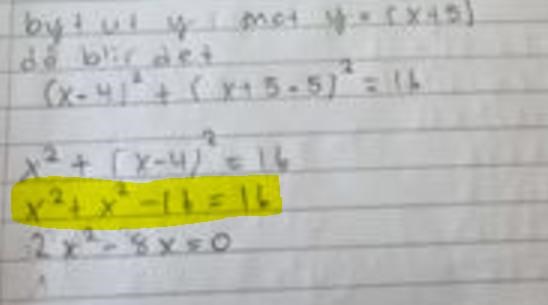 byt ut y mot y = (x+5)
då blir det
(x-4)² + (x+5-5)² = 16
x² + (x-4)² = 16
x² + x² - 16 = 16
2x² - 8x = 0